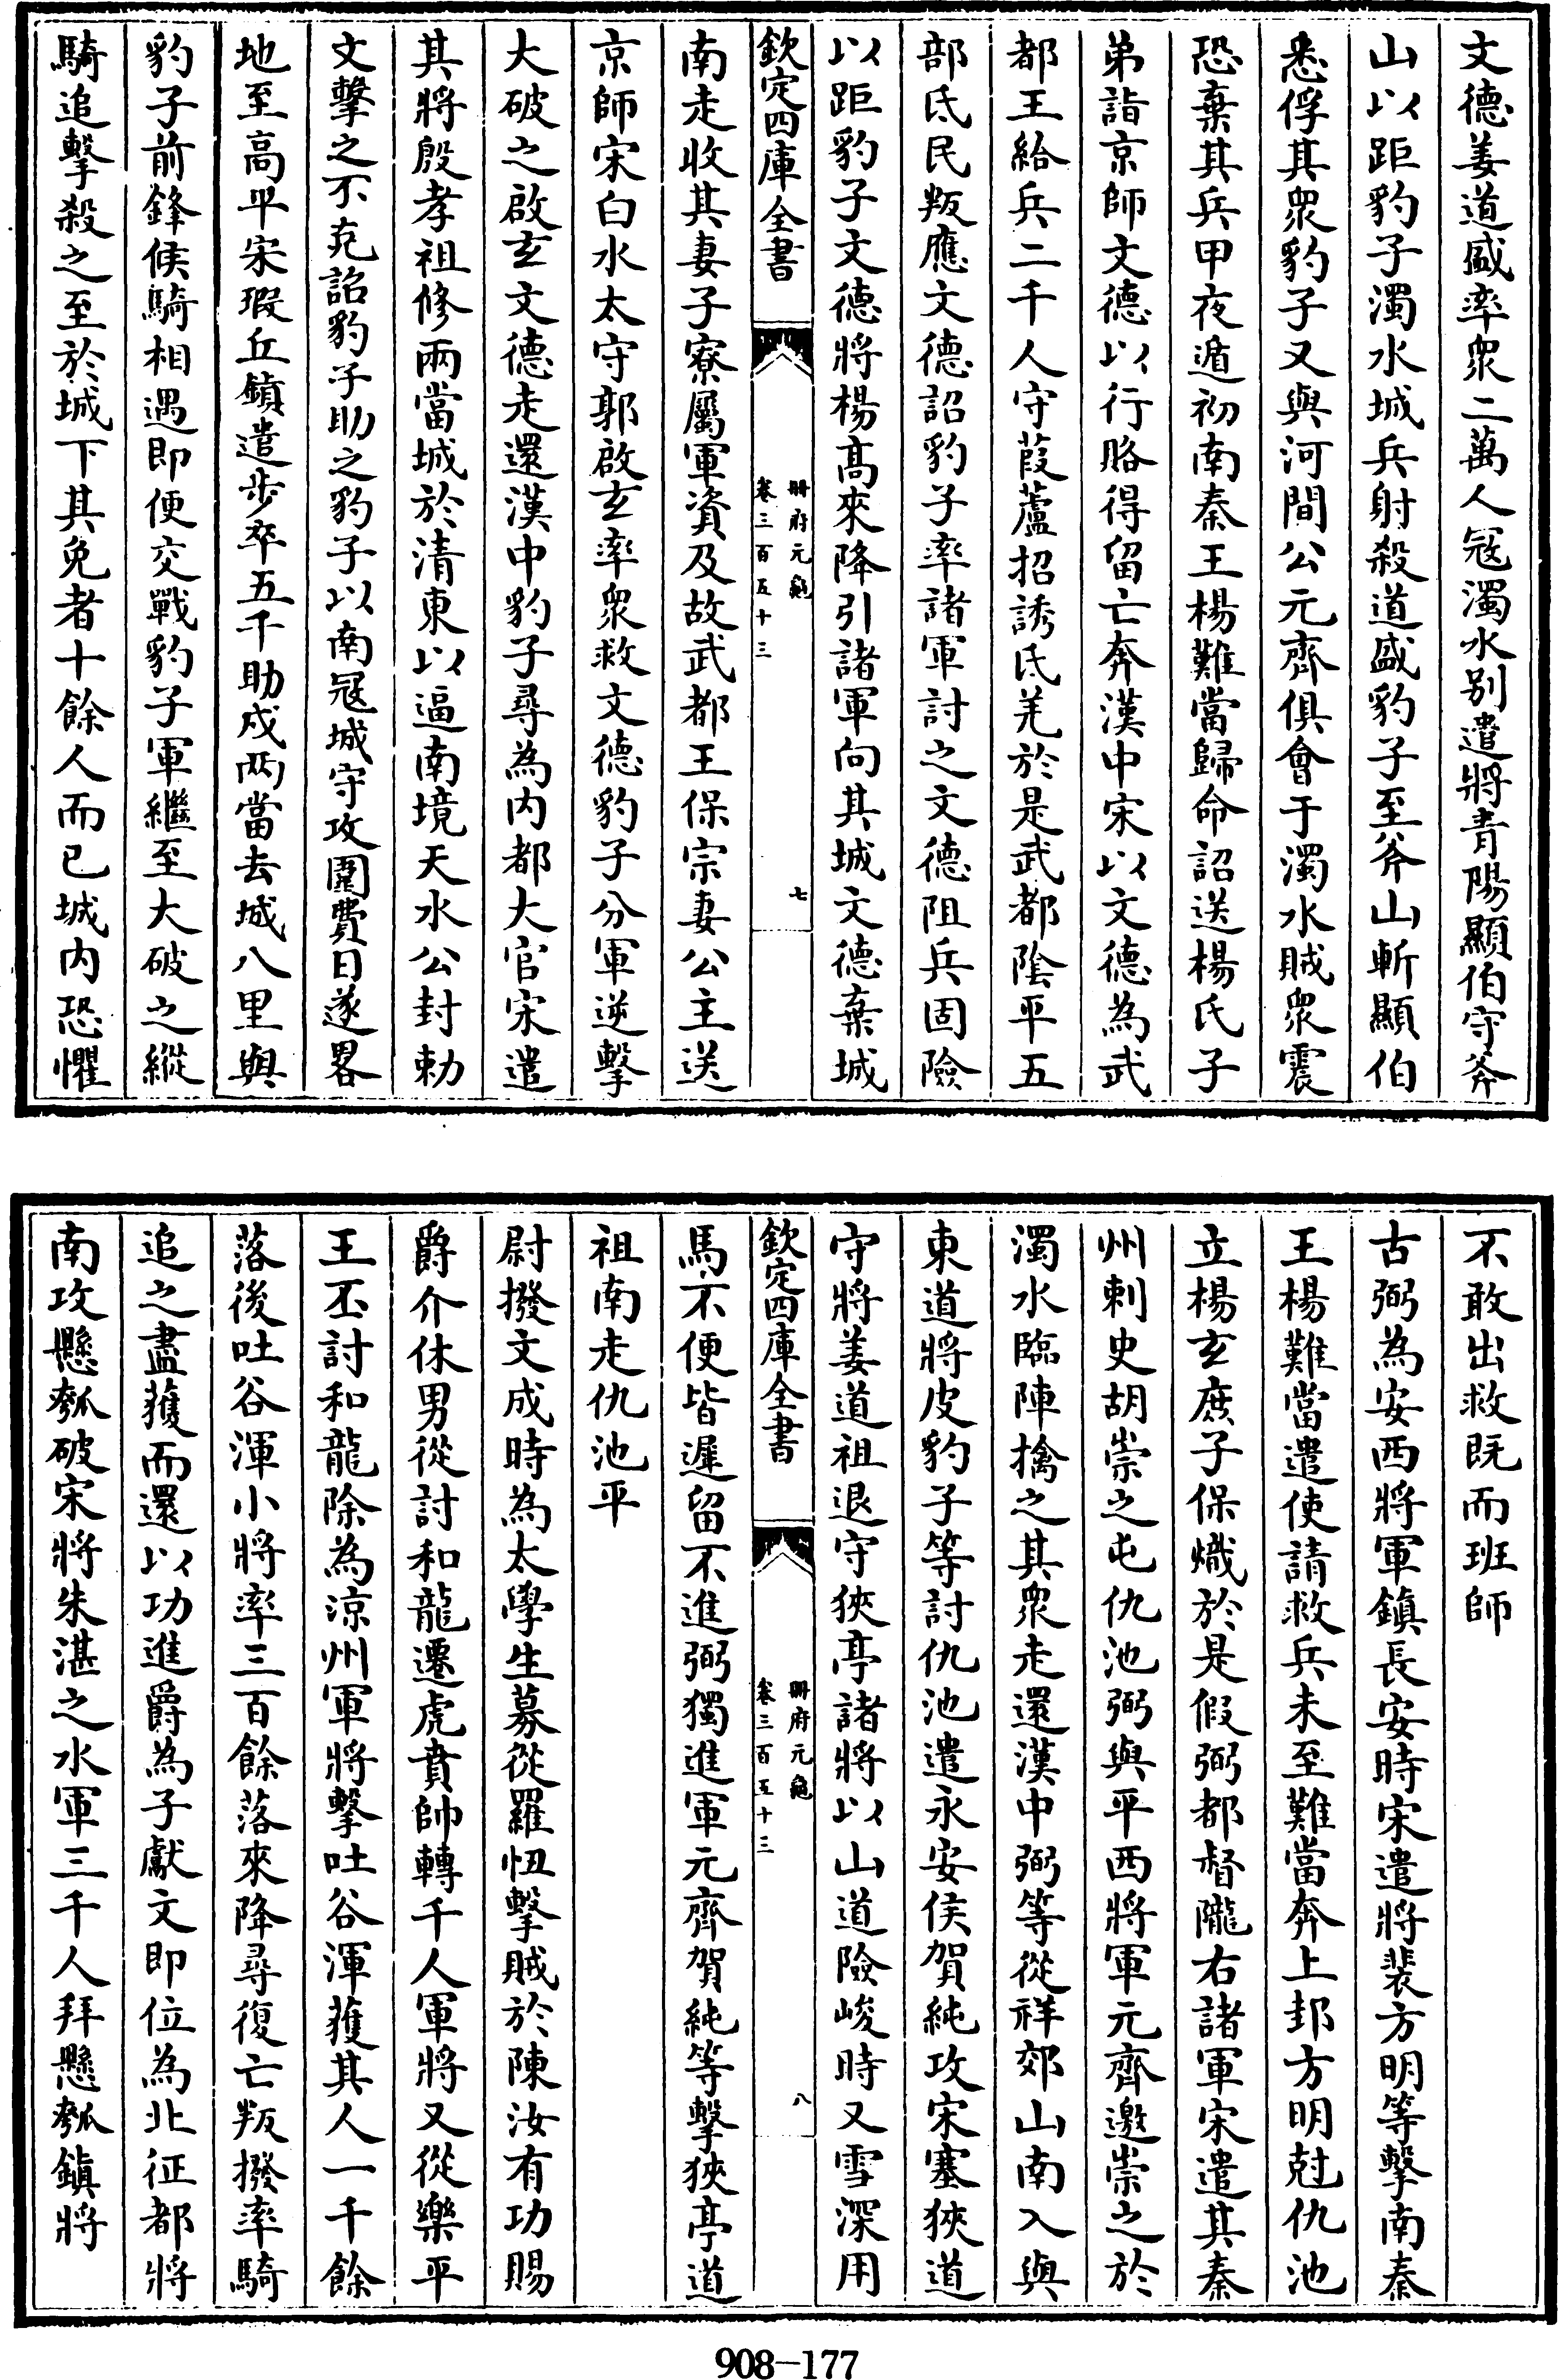 文德姜道盛率衆二萬人冦濁水别遣將青陽顯伯守斧
山以距豹子濁水城兵射殺道盛豹子至斧山斬顯伯
悉俘其衆豹子又與河間公元齊俱會于濁水賊衆震
恐棄其兵甲夜遁初南秦王楊難當歸命詔送楊氏子
弟詣京師文德以行賂得留亡奔漢中宋以文德為武
都王給兵二千人守葭蘆招誘氐羌於是武都陰平五
部氐民叛應文德詔豹子率諸軍討之文德阻兵固險
以距豹子文德將楊髙來降引諸軍向其城文德棄城
欽定四庫全書
冊府元龜
卷三百五十三
七
南走收其妻子寮屬軍資及故武都王保宗妻公主送
京師宋白水太守郭啟玄率衆救文德豹子分軍逆擊
大破之啟玄文德走還漢中豹子尋為内都大官宋遣
其將殷孝祖修兩當城於清東以逼南境天水公封勅
文擊之不克詔豹子助之豹子以南冦城守攻圍費日遂畧
地至高平宋瑕丘鎮遣步卒五千助戍兩當去城八里與
豹子前鋒候騎相遇即便交戰豹子軍繼至大破之縱
騎追擊殺之至於城下其免者十餘人而已城内恐懼
不敢出救既而班師
古弼為安西將軍鎮長安時宋遣將裴方明等擊南秦
王楊難當遣使請救兵未至難當奔上邽方明尅仇池
立楊玄庶子保熾於是假弼都督隴右諸軍宋遣其秦
州刺史胡崇之屯仇池弼與平西將軍元齊邀崇之於
濁水臨陣擒之其衆走還漢中弼等從祥郊山南入與
東道將皮豹子等討仇池遣永安侯賀純攻宋塞狹道
守將姜道祖退守狹亭諸將以山道險峻時又雪深用
欽定四庫全書
冊府元龜
卷三百五十三
八
馬不便皆遲留不進弼獨進軍元齊賀純等擊狹亭道
祖南走仇池平
尉撥文成時為太學生募從羅忸擊賊於陳汝有功賜
爵介休男從討和龍遷虎賁帥轉千人軍將又從樂平
王丕討和龍除為涼州軍將擊吐谷渾獲其人一千餘
落後吐谷渾小將率三百餘落來降尋復亡叛撥率騎
追之盡獲而還以功進爵為子獻文即位為北征都將
南攻懸瓠破宋將朱湛之水軍三千人拜懸瓠鎮將
908-177